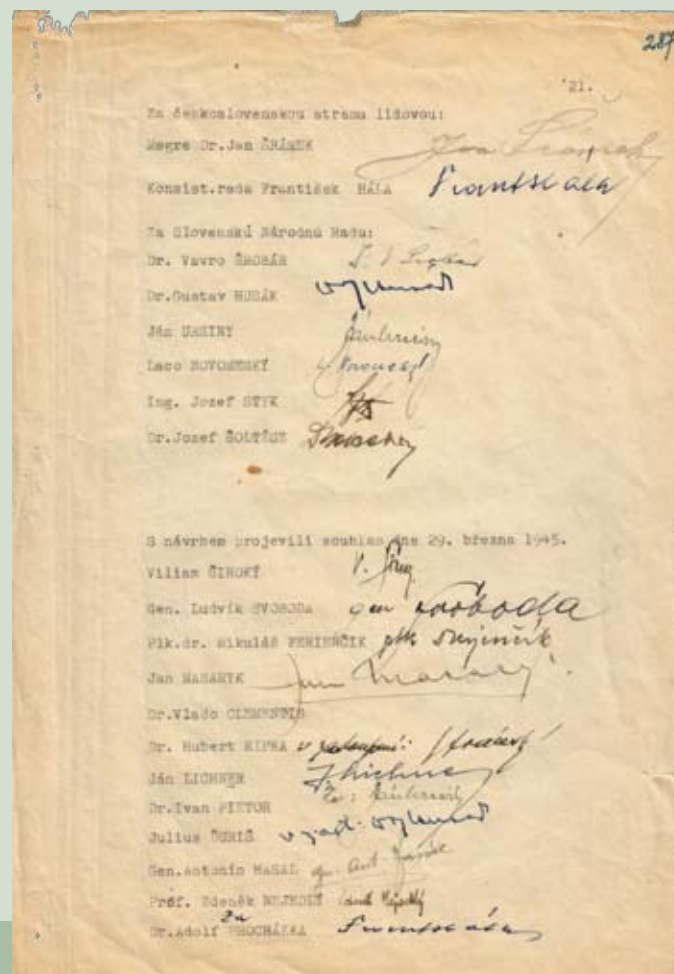 287
21.
Za československou stranu lidovou:
Msgre Dr.Jan ŠRÁMEK Jan Šrámek
Konsist.rada František HÁLA
Za Slovenskú Národnú Radu:
Dr. Vavro ŠROBÁR
Dr.Gustav HUSÁK
Ján URSINY
Laco NOVOMESKÝ
Ing. Jozef STYK
Dr.Jozef ŠOLTÉSZ
S návrhem projevili souhlas dne 29. března 1945.
Viliam ŠIROKÝ V. Široký
Gen. Ludvík SVOBODA gen Svoboda
Plk.dr. Mikuláš FERIENČIK plk
Jan MASARYK Jan Masaryk
Dr.Vlado CLEMENTIS
Dr. Hubert RIPKA v zastoupení:
Ján LICHNER JLichner
Dr.Ivan PIETOR
Julius ĎURIŠ v zast.
Gen.Antonín HASAL gen. Ant. Hasal
Prof. Zdeněk NEJEDLÝ Zdeněk Nejedlý
za
Dr.Adolf PROCHÁZKA